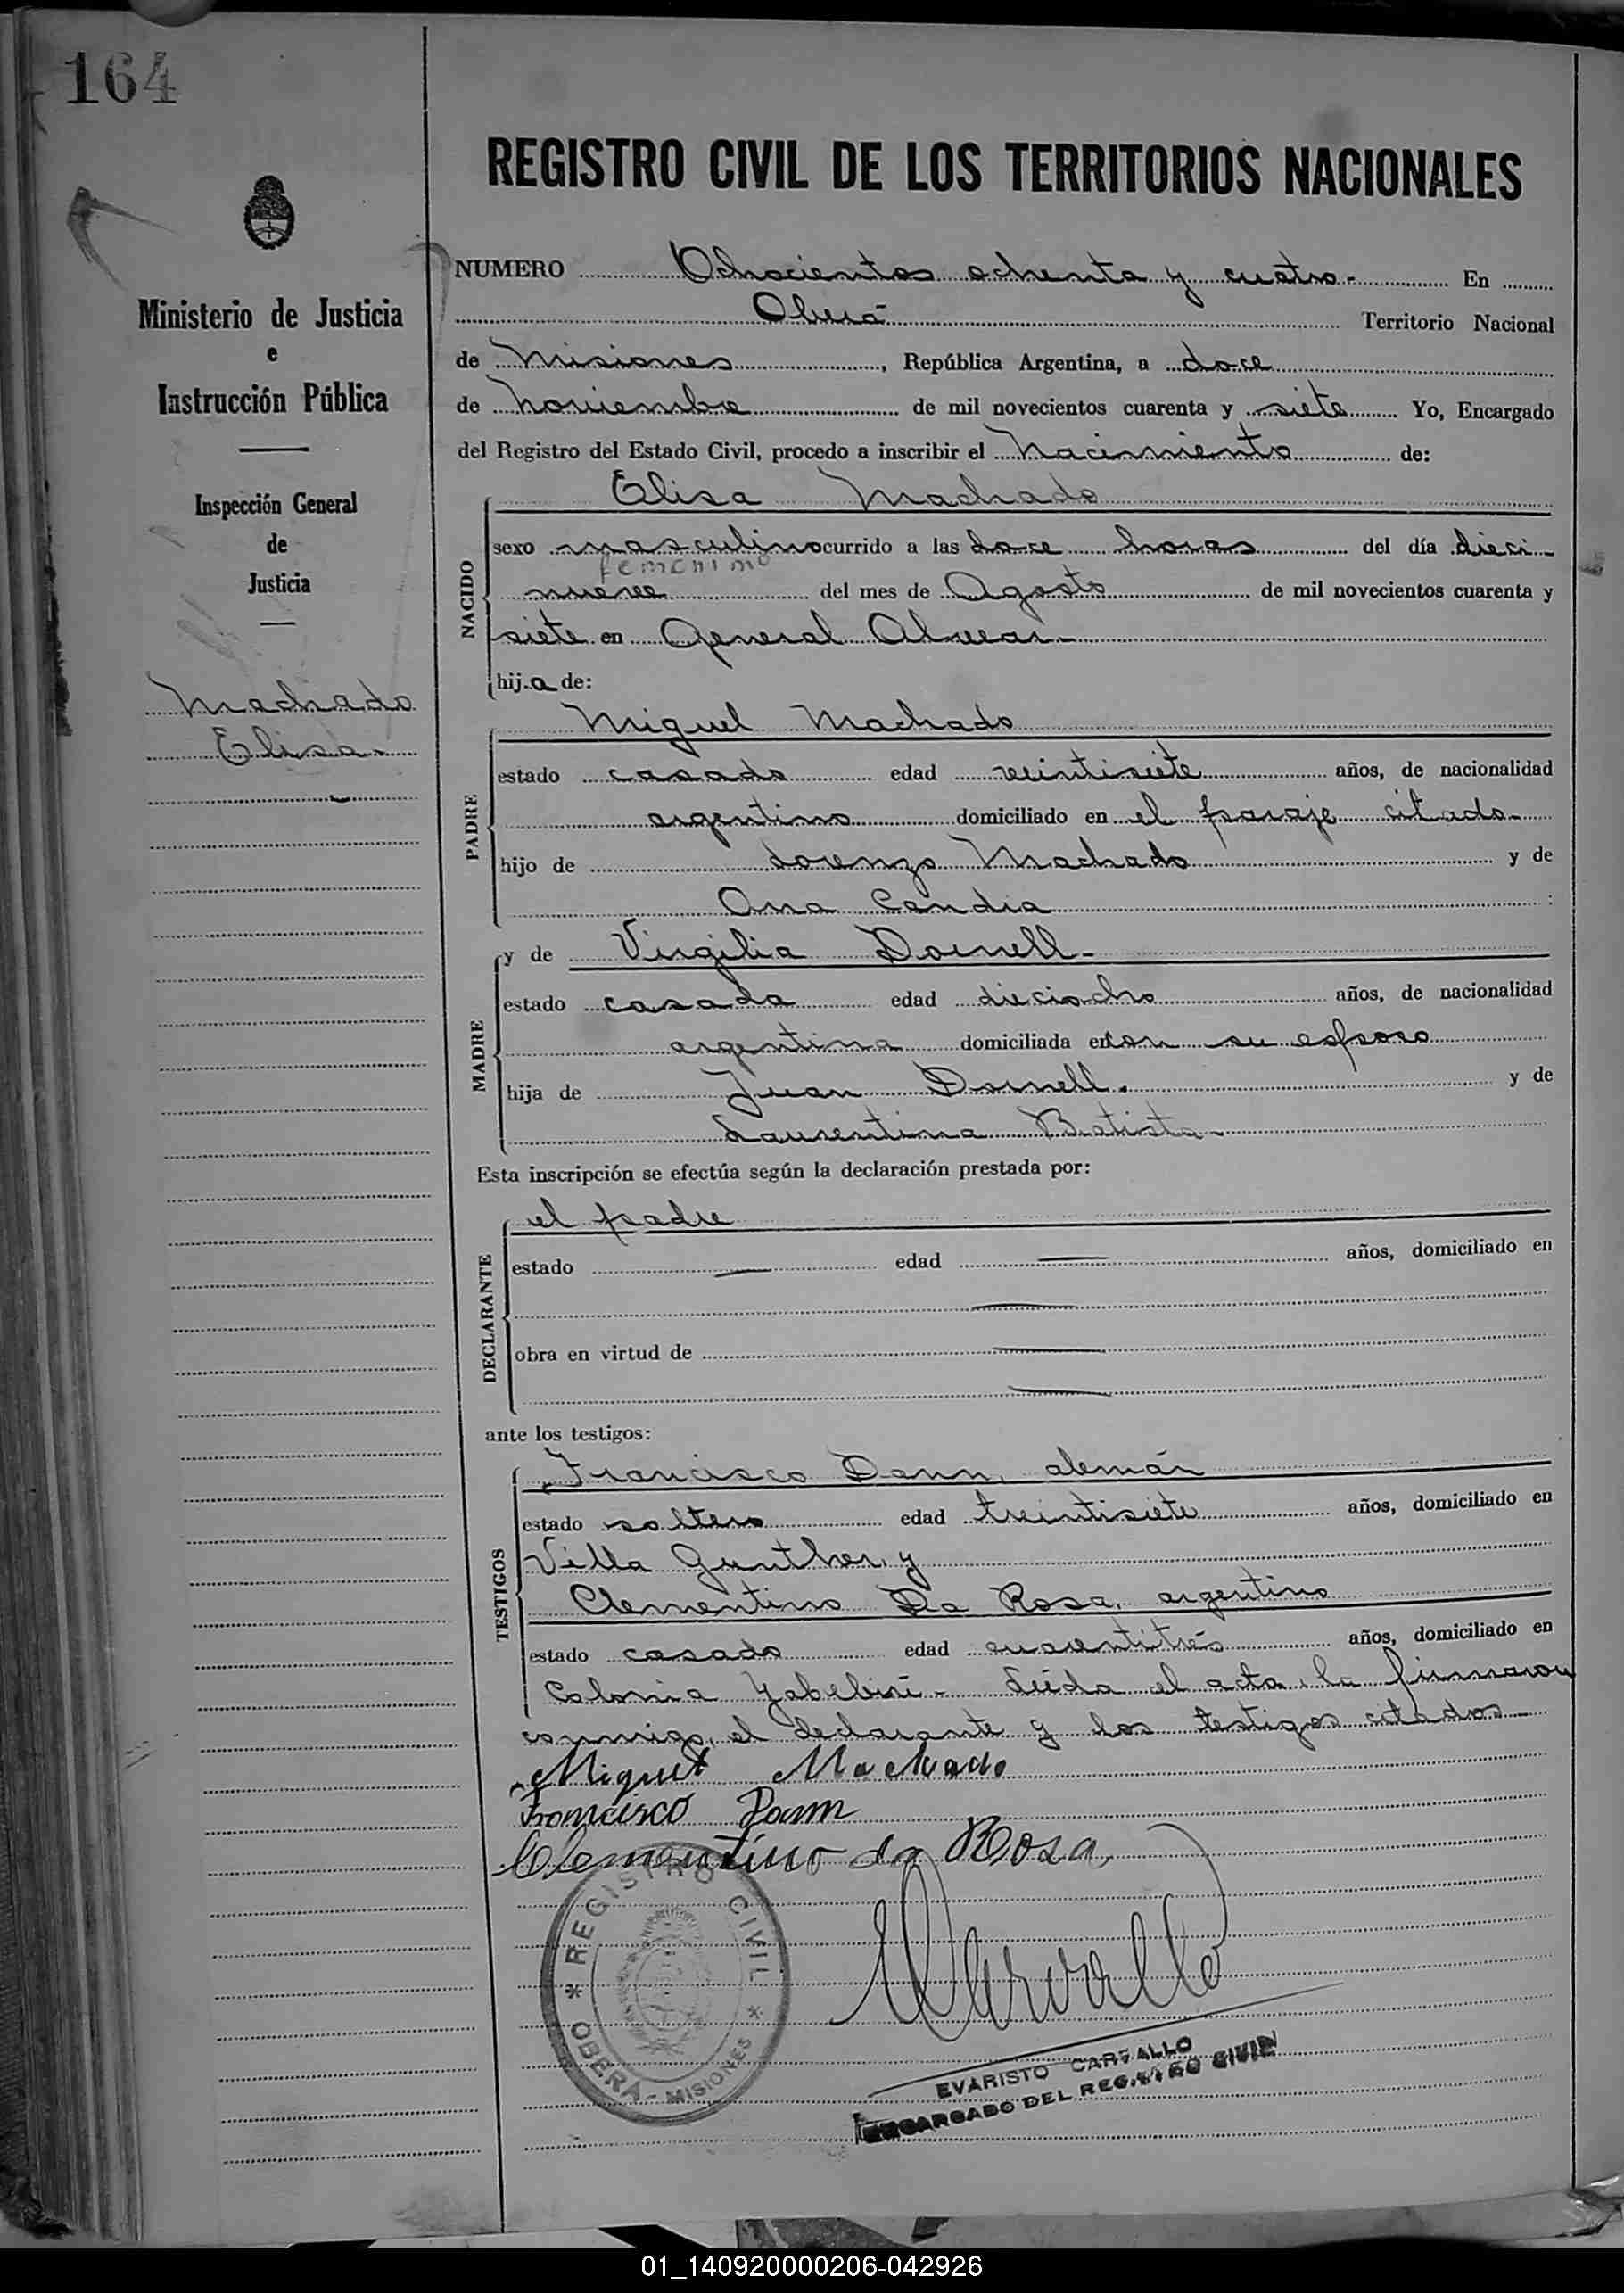 164
REGISTRO CIVIL DE LOS TERRITORIOS NACIONALES
Ministerio de Justicia
e
Instrucción Pública
Inspección General
de
Justicia
Machado
Elisa-
NUMERO Ochocientos ochenta y cuatro.- En
Oberá Territorio Nacional
de Misiones, República Argentina, a doce
de Noviembre de mil novecientos cuarenta y siete Yo, Encargado
del Registro del Estado Civil, procedo a inscribir el Nacimiento de:
NACIDO
Elisa Machado
sexo masculino ocurrido a las doce horas del día dieci-
femenino
nueve del mes de Agosto de mil novecientos cuarenta y
siete en General Alvear-
hija de:
PADRE
Miguel Machado
estado casado edad veintisiete años, de nacionalidad
argentino domiciliado en el paraje citado-
hijo de Lorenzo Machado y de
Ana Candia :
MADRE
y de Virgilia Dornell-
estado casada edad dieciocho años, de nacionalidad
argentina domiciliada en con su esposo
hija de Juan Dornell. y de
Laurentina Batista-
Esta inscripción se efectúa según la declaración prestada por:
DECLARANTE
el padre
estado — edad — años, domiciliado en
—
obra en virtud de —
—
ante los testigos:
TESTIGOS
Francisco Damm, alemán
estado soltero edad treintisiete años, domiciliado en
Villa Gunther, y
Clementino Da Rosa, argentino
estado casado edad cuarentitrés años, domiciliado en
Colonia Yabebirí- Leída el acta, la firmaron
conmigo, el declarante y los testigos citados-
Miguel Machado
Francisco Damm
Clementino da Rosa,
REGISTRO CIVIL
* OBERA - MISIONES *
ECarvallo
EVARISTO CARVALLO
ENCARGADO DEL REGISTRO CIVIL
01_140920000206-042926